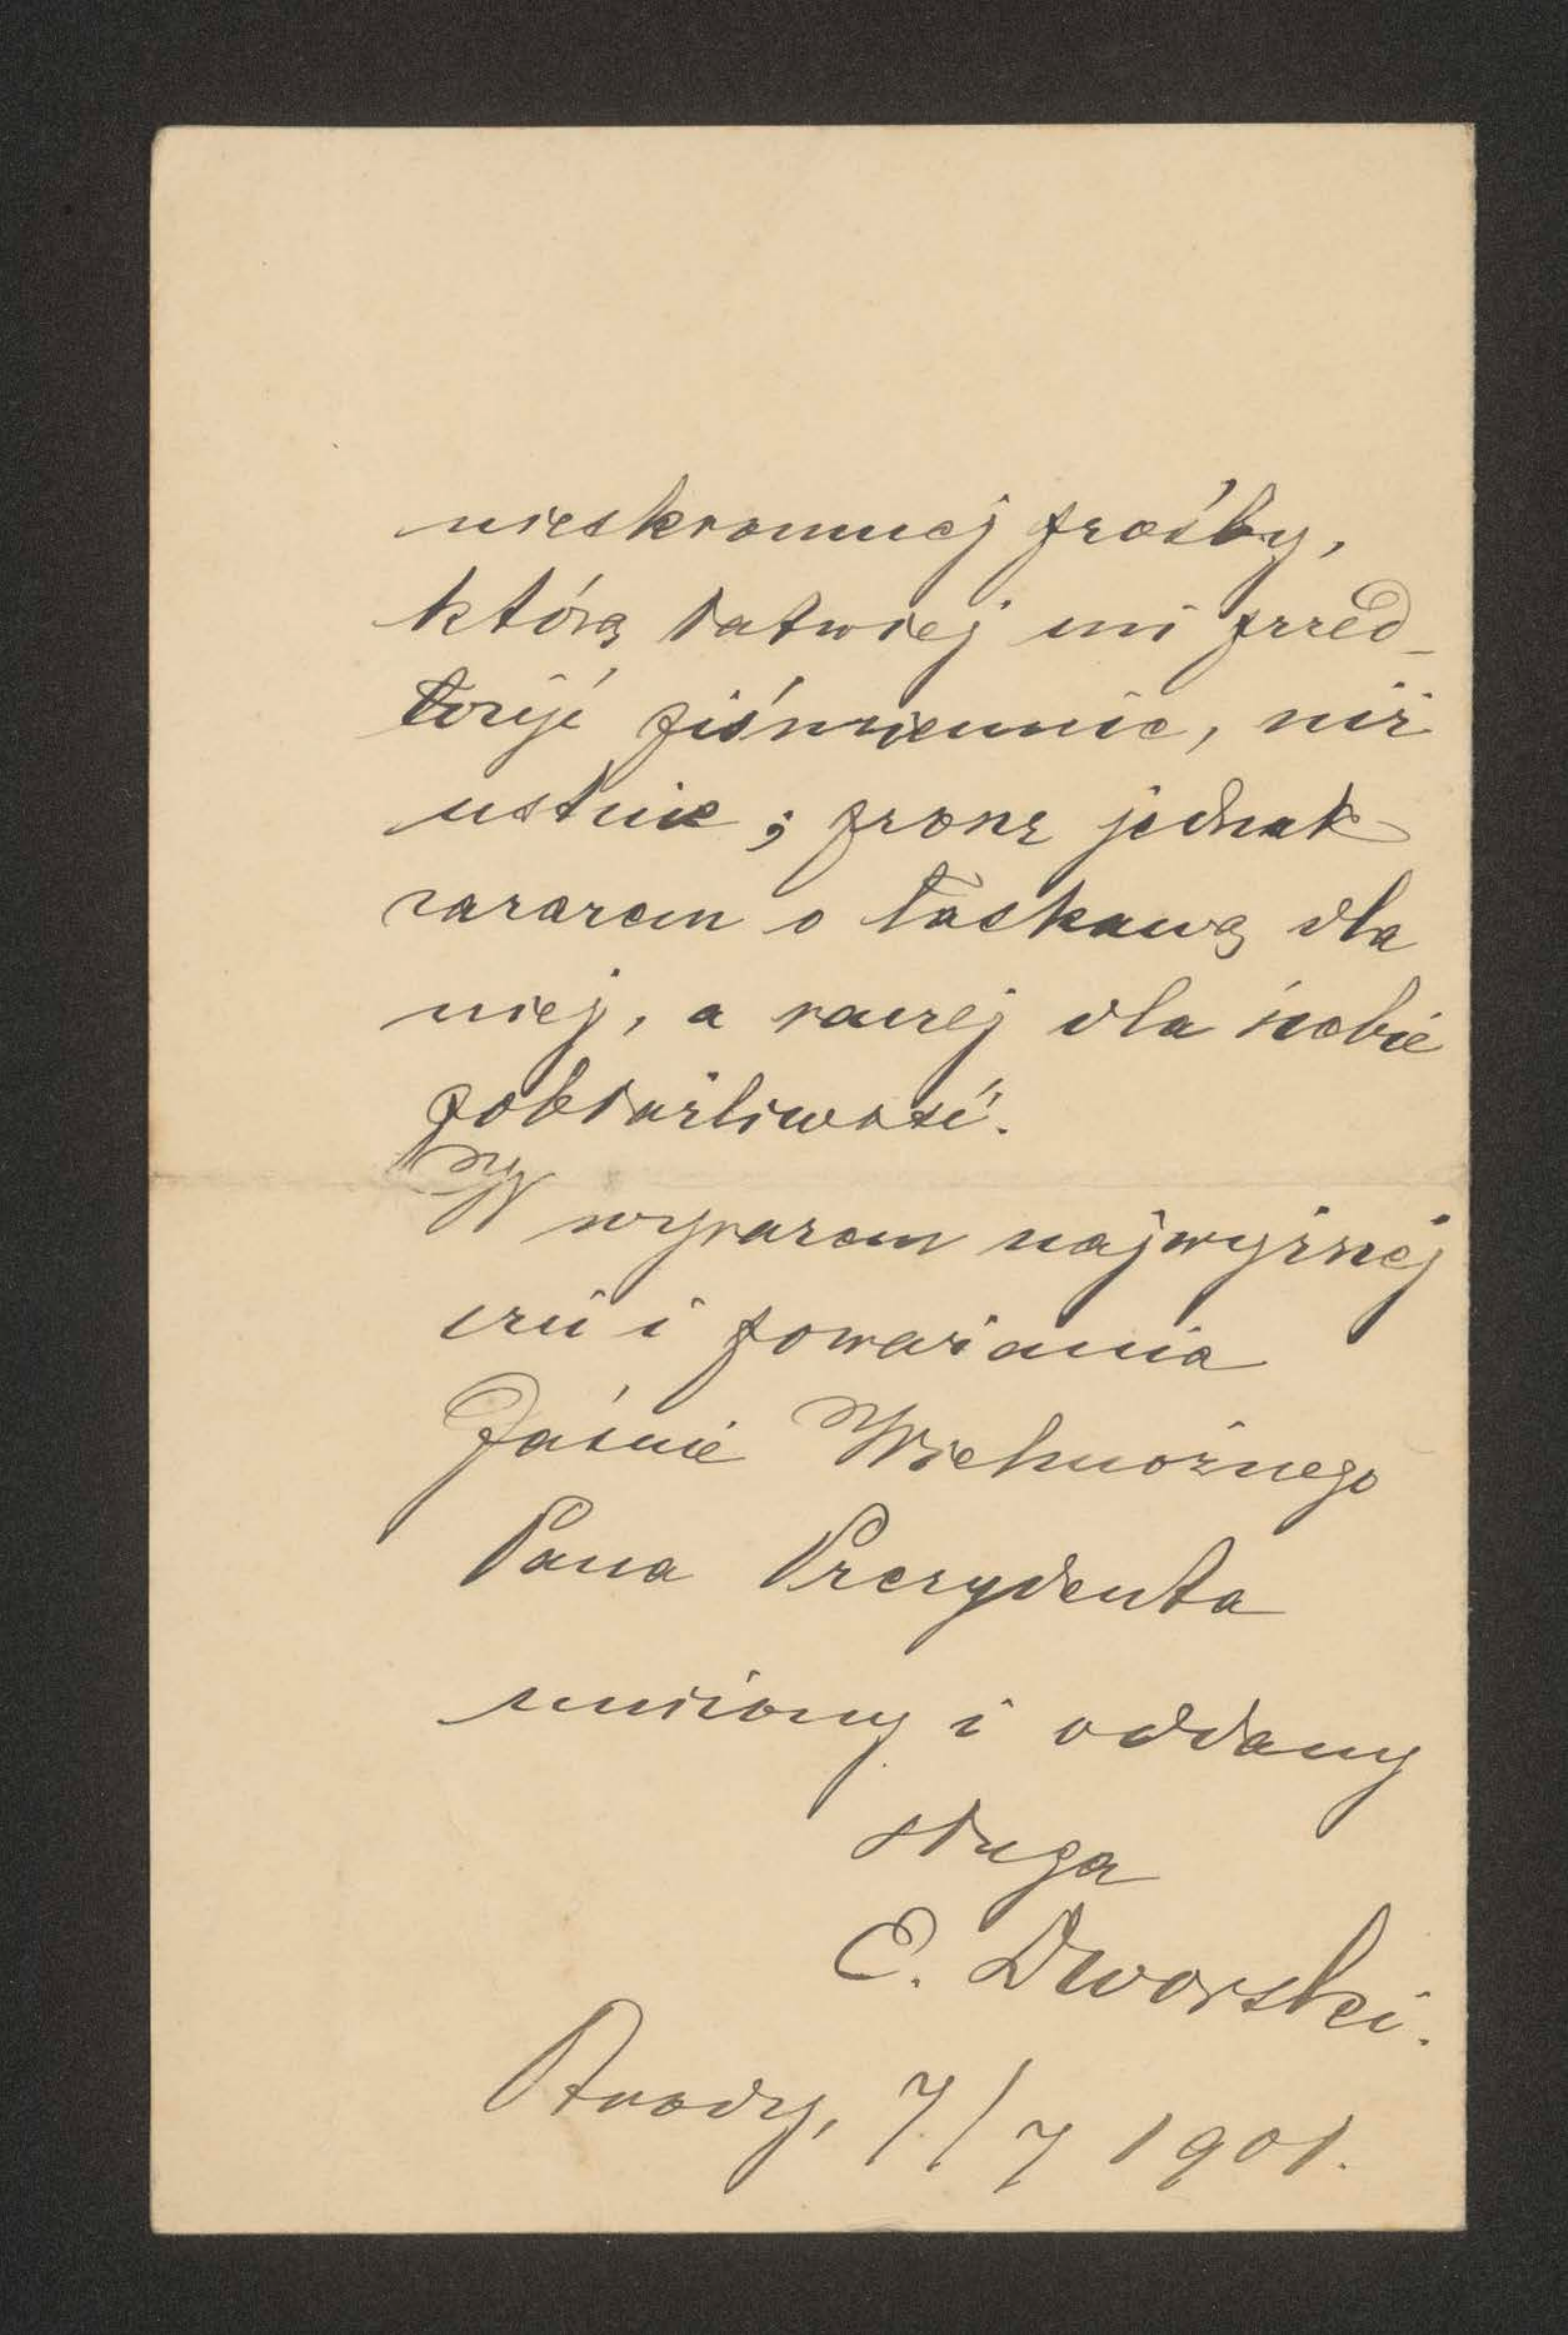 nieskromnej prośby,
którą łatwiej mi przed-
łożyć piśmiennie, niż
ustnie; proszę jednak
zarazem o łaskawą dla
niej, a raczej dla siebie
pobłażliwość.
W wyrazem najwyższej
czci i poważania
Jaśnie Wielmożnego
Pana Prezydenta
uniżony i oddany
sługa
E. Dworski.
7/7 1901.